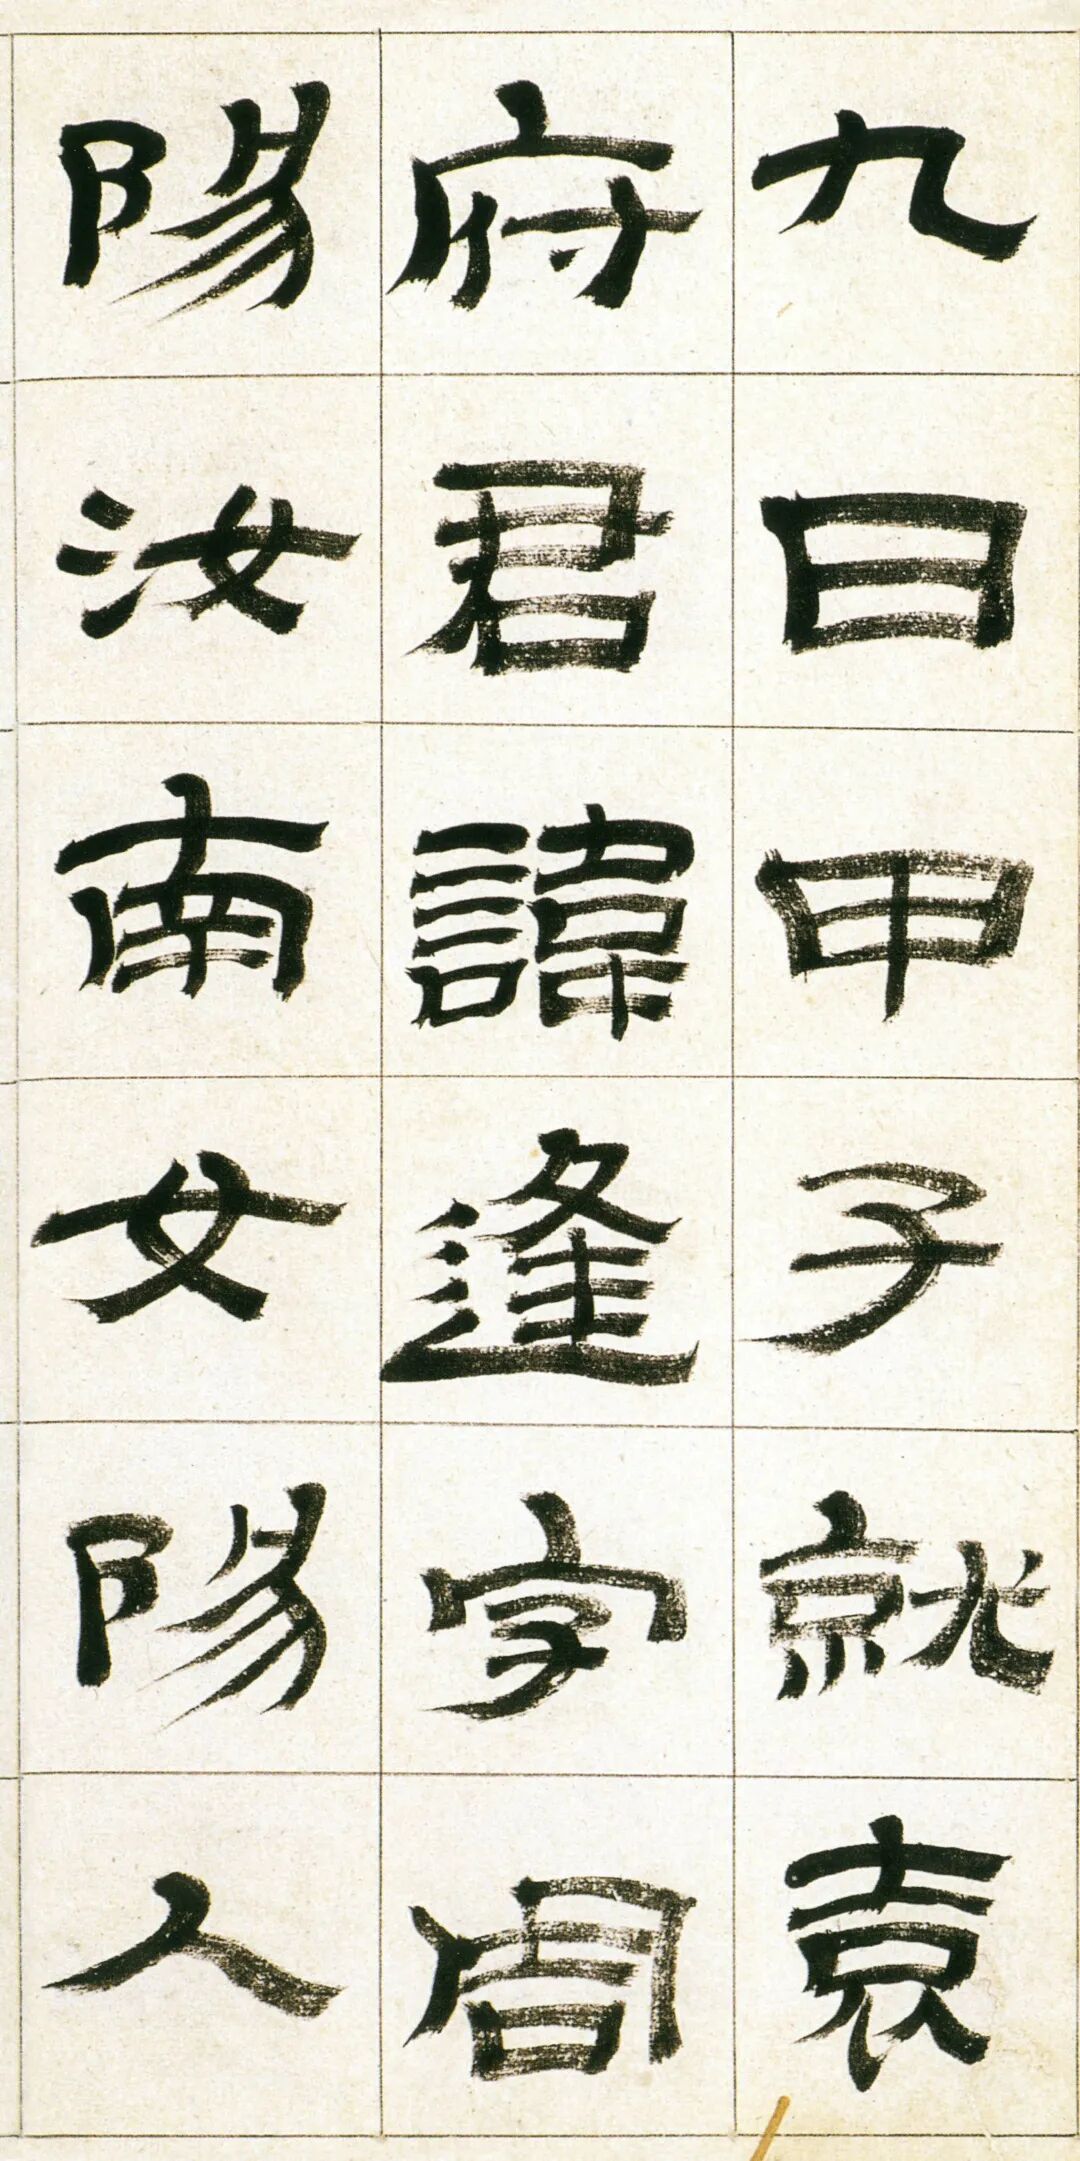 九日甲子就袁
府君諱逢字周
陽汝南女陽人